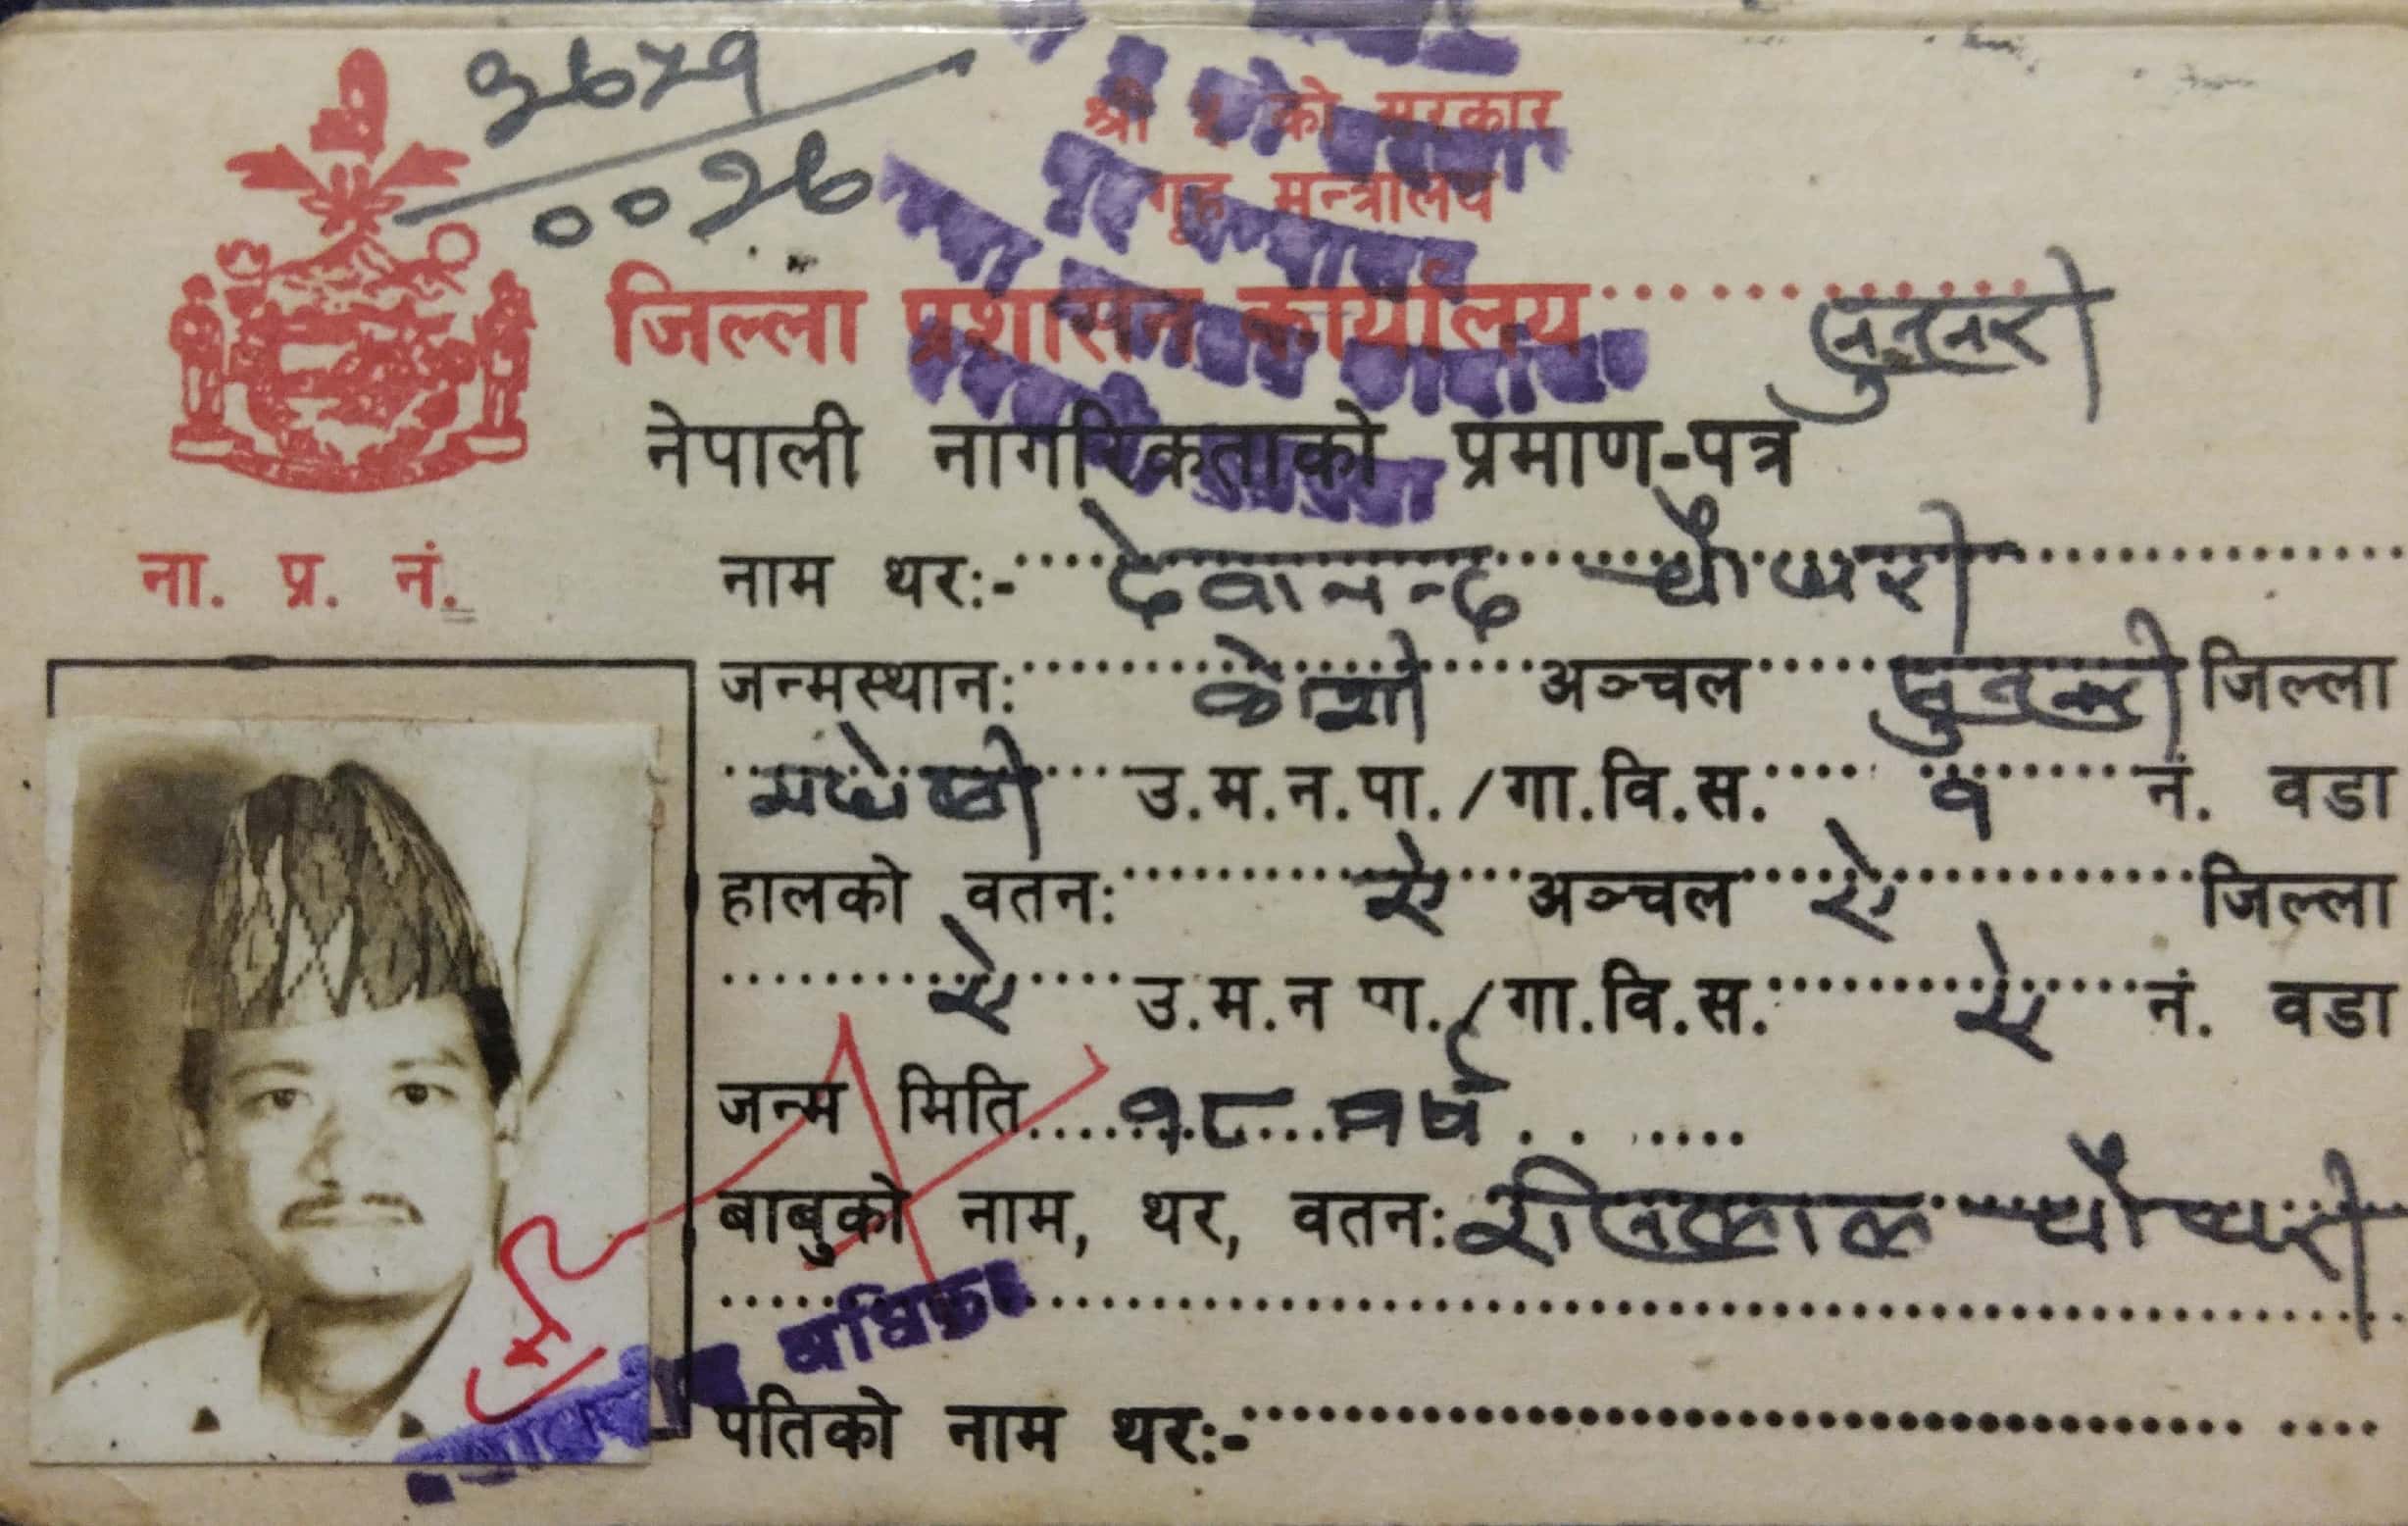 ३७२१
००२७
श्री ५ को सरकार
गृह मन्त्रालय
जिल्ला प्रशासन कार्यालय सुनसरी
नेपाली नागरिकताको प्रमाण-पत्र
ना. प्र. नं.
नाम थर:- देवानन्द चौधरी
जन्मस्थान: कोशी अञ्चल सुनसरी जिल्ला
उ.म.न.पा./गा.वि.स. १ नं. वडा
हालको वतन: ऐ अञ्चल ऐ जिल्ला
ऐ उ.म.न पा./गा.वि.स. ऐ नं. वडा
जन्म मिति १८ वर्ष
बाबुको नाम, थर, वतन: चौधरी
अधिकृत
पतिको नाम थर:-